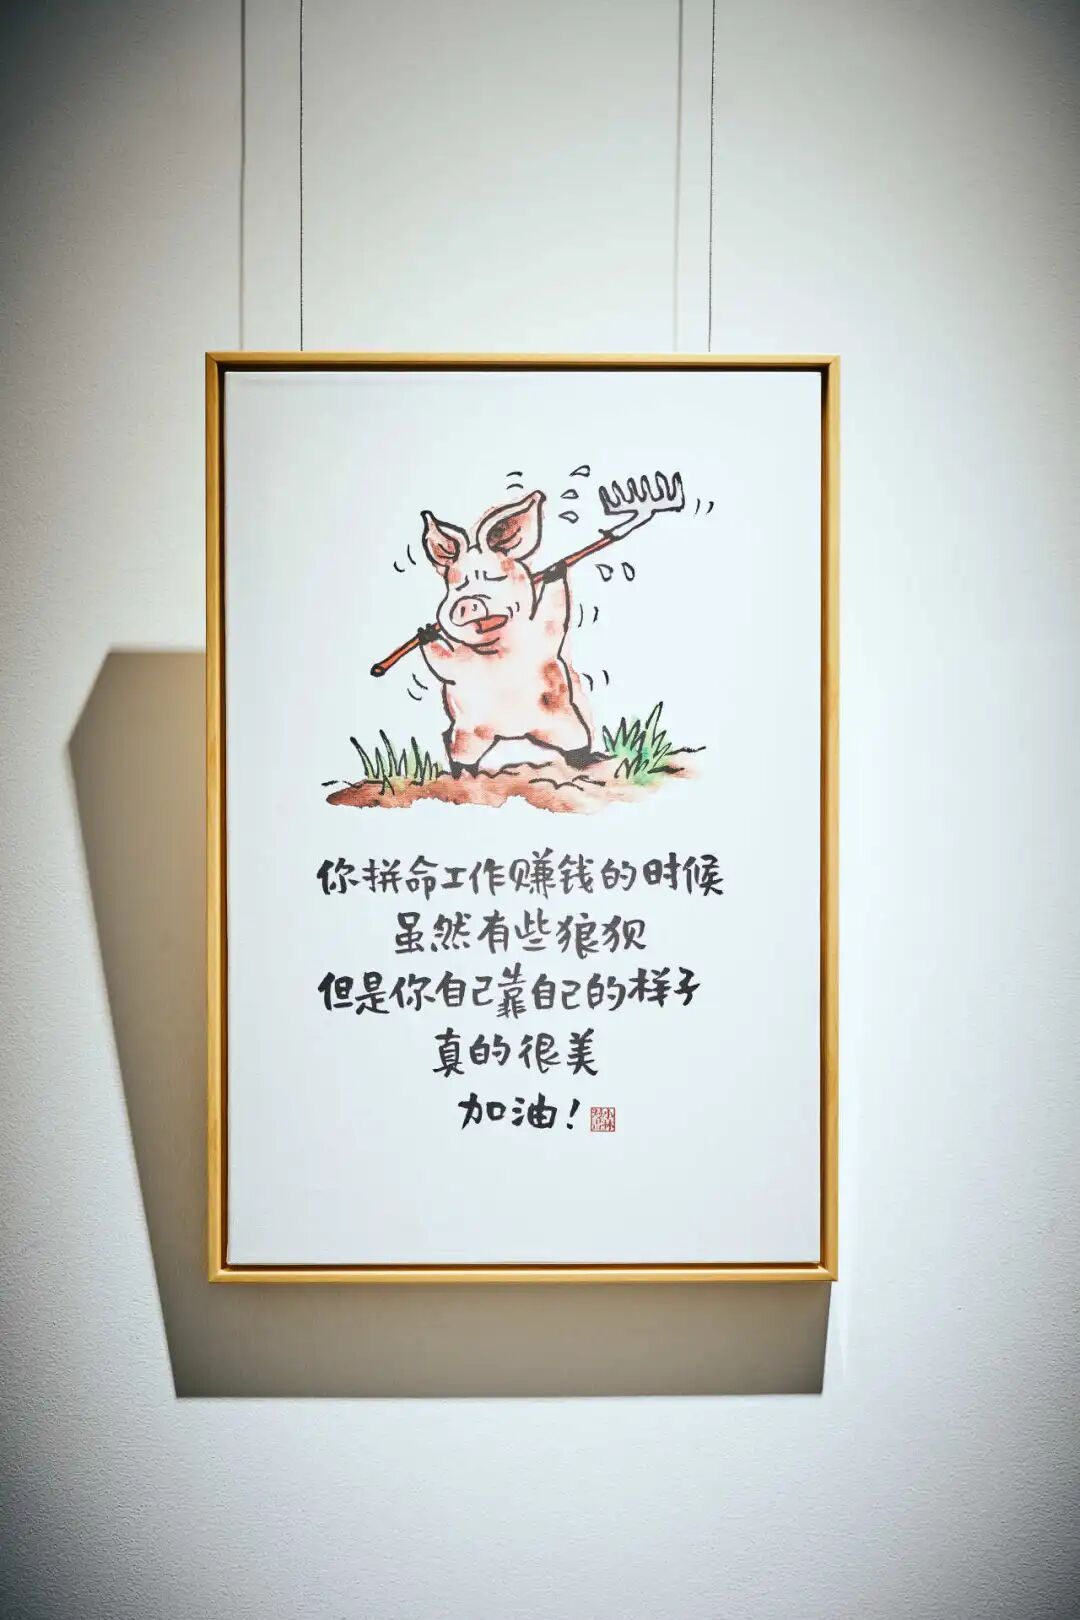 你拼命工作赚钱的时候
虽然有些狼狈
但是你自己靠自己的样子
真的很美
加油！